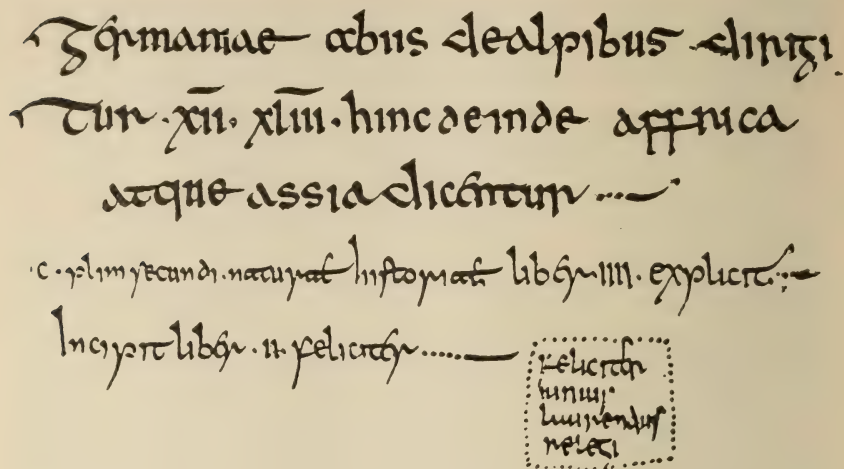 Germaniae abus dealpibus dirigi
tur · x̅i̅i̅ · x̅l̅i̅i̅i̅ · hinc deinde affrica
atque assia dicentur ...
· c · plini secundi · naturał historiał liber · iiii · explicit
Incipit liber · u · feliciter ......
feliciter
iunius
laurentius
relegi